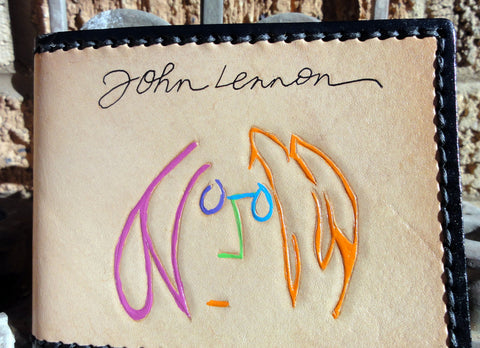 John Lennon